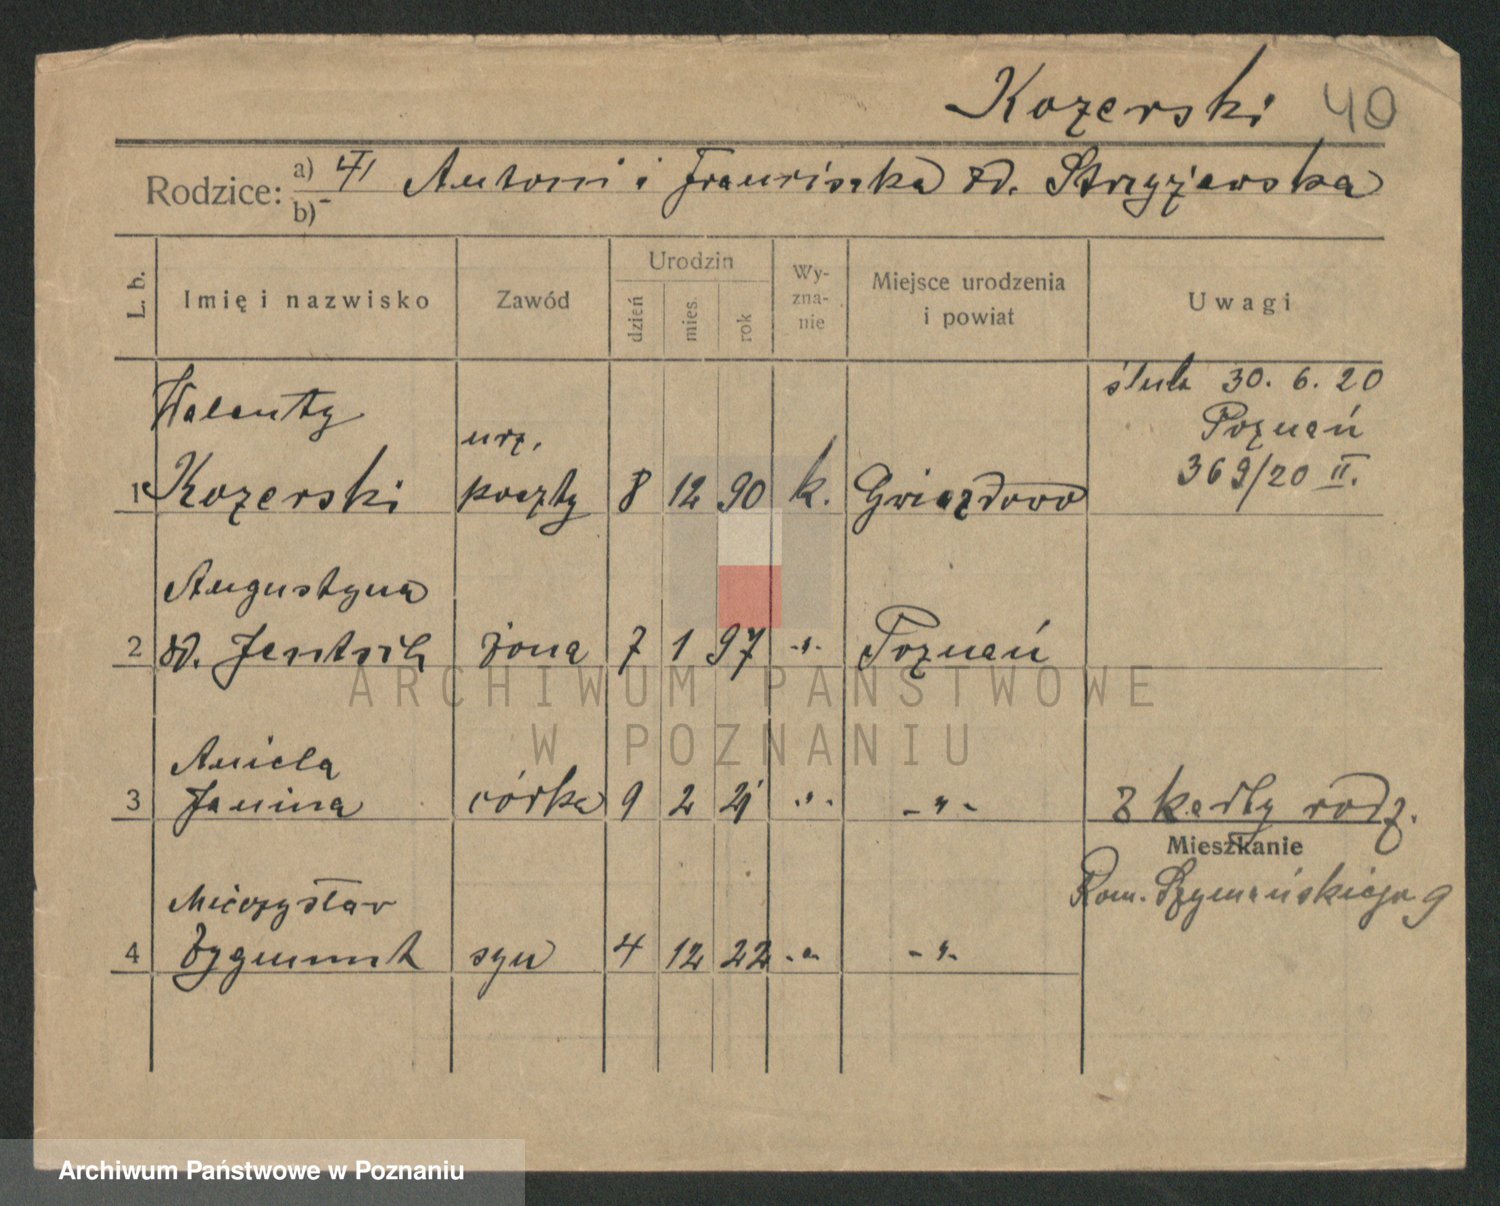 Kozerski 40
Rodzice: a) Antoni i Franciszka zd. Strzyżewska
b) -
L. b.
Imię i nazwisko
Zawód
Urodzin
dzień
mies.
rok
Wy-
zna-
nie
Miejsce urodzenia
i powiat
Uwagi
Walenty
urz.
1 Kozerski poczty 8 12 90 k. Gwiazdowo
ślub 30. 6. 20
Poznań
369/20 II.
Augustyna
2 zd. Jentsch żona 7 1 97 -"- Poznań
Aniela
3 Janina córka 9 2 21 -"- -"-
z kartty rodz.
Mieszkanie
Rom. Szymańskiego 9
Mieczysław
4 Zygmunt syn 4 12 22 -"- -"-
ARCHIWUM PAŃSTWOWE
W POZNANIU
Archiwum Państwowe w Poznaniu